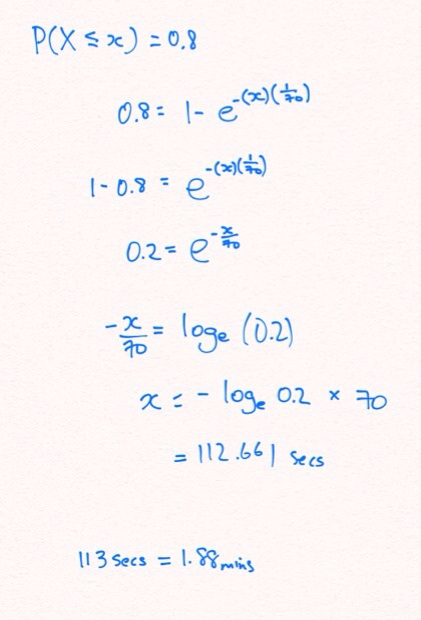 P(X ≤ x) = 0.8
0.8 = 1 - e^{-(x)(1/70)}
1 - 0.8 = e^{-(x)(1/70)}
0.2 = e^{-x/70}
-x/70 = logₑ (0.2)
x = - logₑ 0.2 × 70
= 112.661 secs
113 secs = 1.88 mins